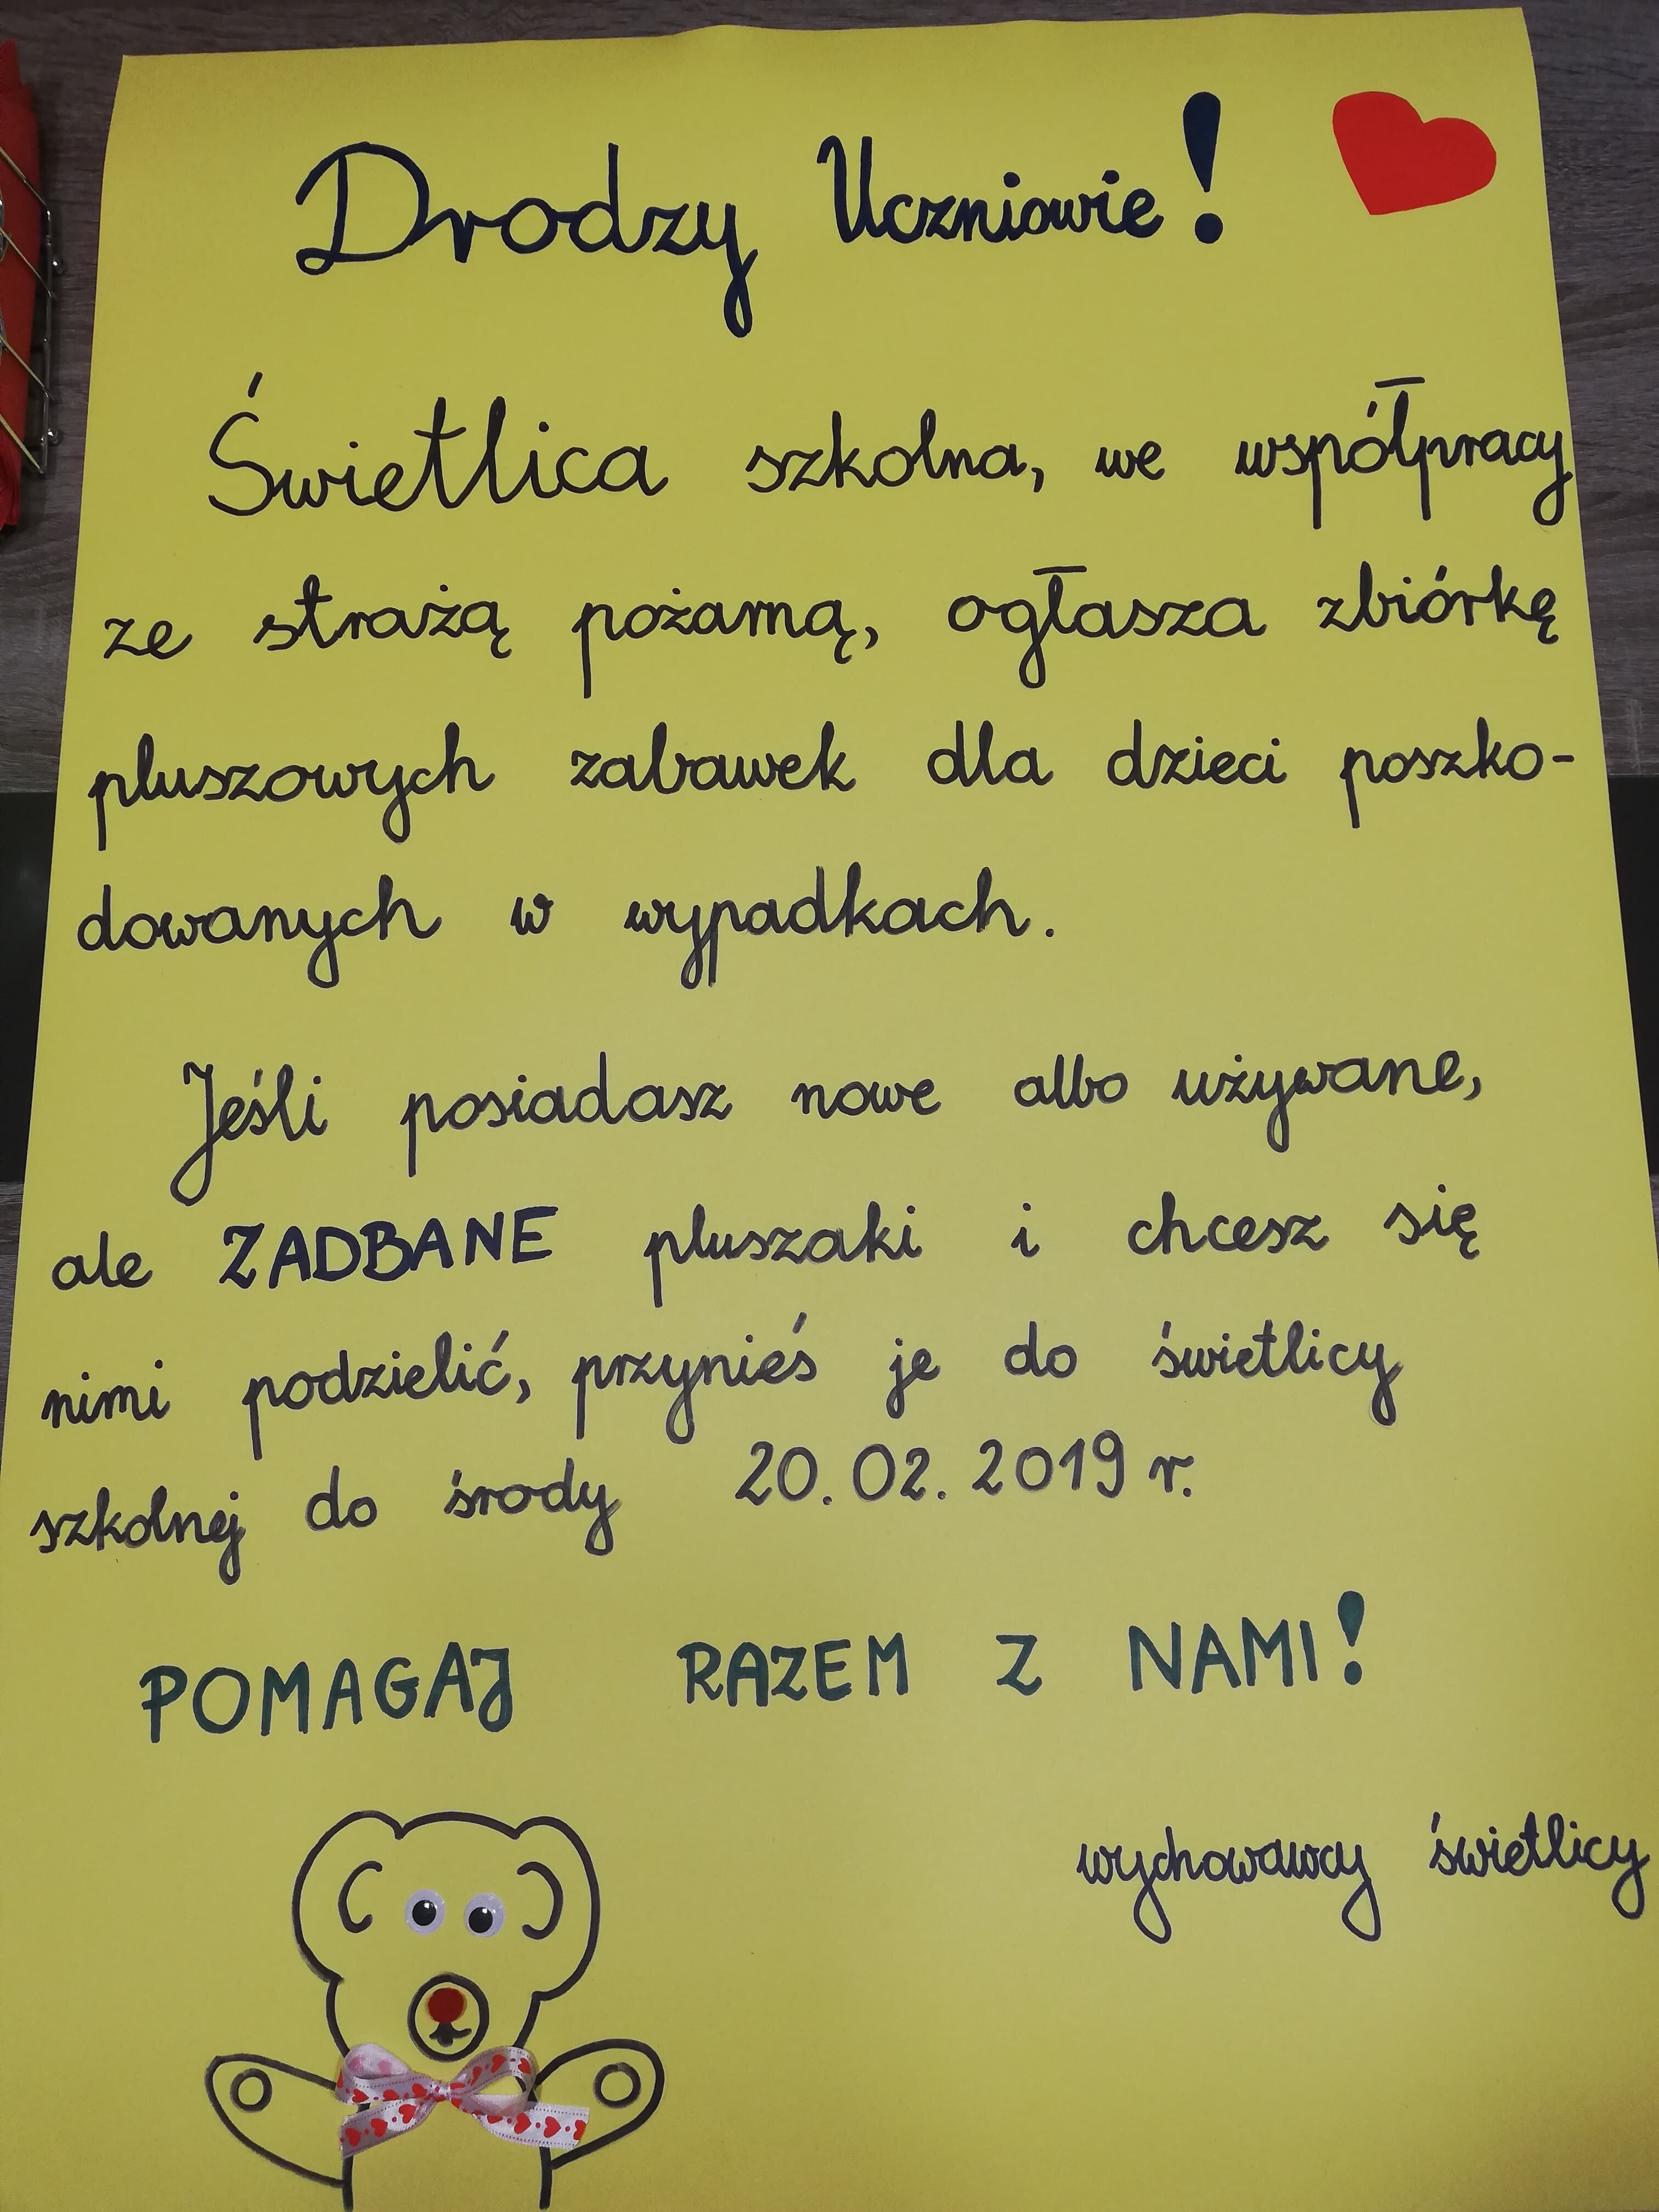 Drodzy Uczniowie!
Świetlica szkolna, we współpracy
ze strażą pożarną, ogłasza zbiórkę
pluszowych zabawek dla dzieci poszko-
dowanych w wypadkach.
Jeśli posiadasz nowe albo używane,
ale ZADBANE pluszaki i chcesz się
nimi podzielić, przynieś je do świetlicy
szkolnej do środy 20.02.2019 r.
POMAGAJ RAZEM Z NAMI!
wychowawcy świetlicy